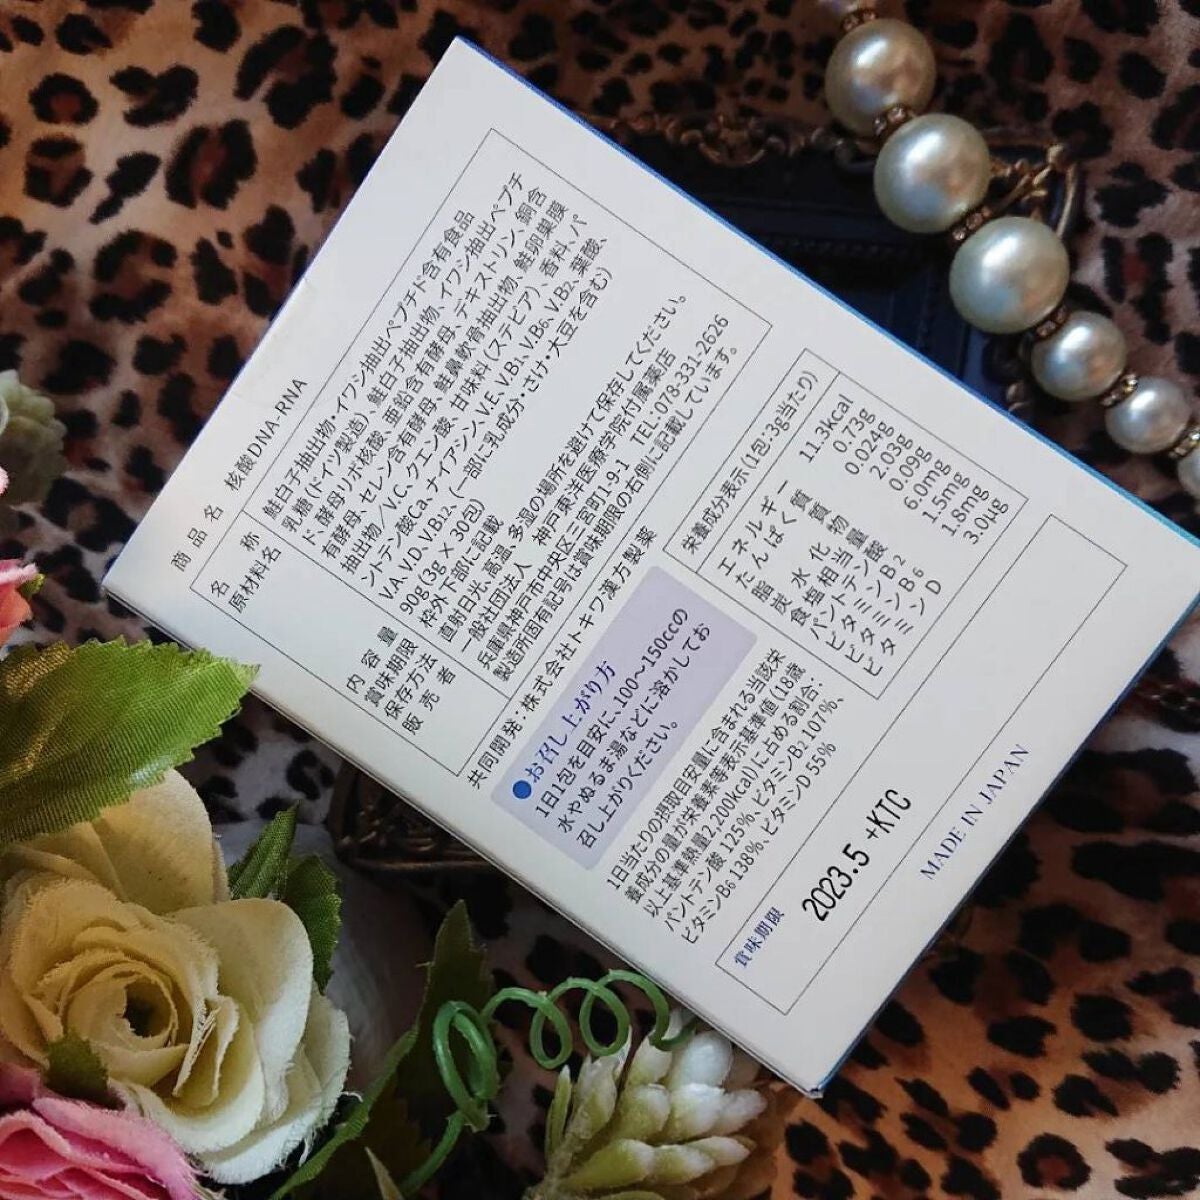 商品名 核酸DNA-RNA
名称 鮭白子抽出物・イワシ抽出ペプチド含有食品
原材料名 乳糖(ドイツ製造)、鮭白子抽出物、イワシ抽出ペプチ
ド、酵母リボ核酸、亜鉛含有酵母、デキストリン、銅含
有酵母、セレン含有酵母、鮭鼻軟骨抽出物、鮭卵巣膜
抽出物/V.C、クエン酸、甘味料(ステビア)、香料、パ
ントテン酸Ca、ナイアシン、V.E、V.B1、V.B6、V.B2、葉酸、
V.A、V.D、V.B12、(一部に乳成分・さけ・大豆を含む)
内容量 90g(3g×30包)
賞味期限 枠外下部に記載
保存方法 直射日光、高温、多湿の場所を避けて保存してください。
販売者 一般社団法人 神戸東洋医療学院付属薬店
兵庫県神戸市中央区二宮町1-9-1 TEL:078-331-2626
製造所固有記号は賞味期限の右側に記載しています。
共同開発:株式会社トキワ漢方製薬
●お召し上がり方
1日1包を目安に、100〜150ccの
水やぬるま湯などに溶かしてお
召し上がりください。
栄養成分表示(1包:3g当たり)
エネルギー 11.3kcal
たんぱく質 0.73g
脂質 0.024g
炭水化物 2.03g
食塩相当量 0.09g
パントテン酸 6.0mg
ビタミンB2 1.5mg
ビタミンB6 1.8mg
ビタミンD 3.0μg
1日当たりの摂取目安量に含まれる当該栄
養成分の量が栄養素等表示基準値(18歳
以上基準熱量2,200kcal)に占める割合:
パントテン酸 125%、ビタミンB2 107%、
ビタミンB6 138%、ビタミンD 55%
賞味期限 2023.5 +KTC
MADE IN JAPAN